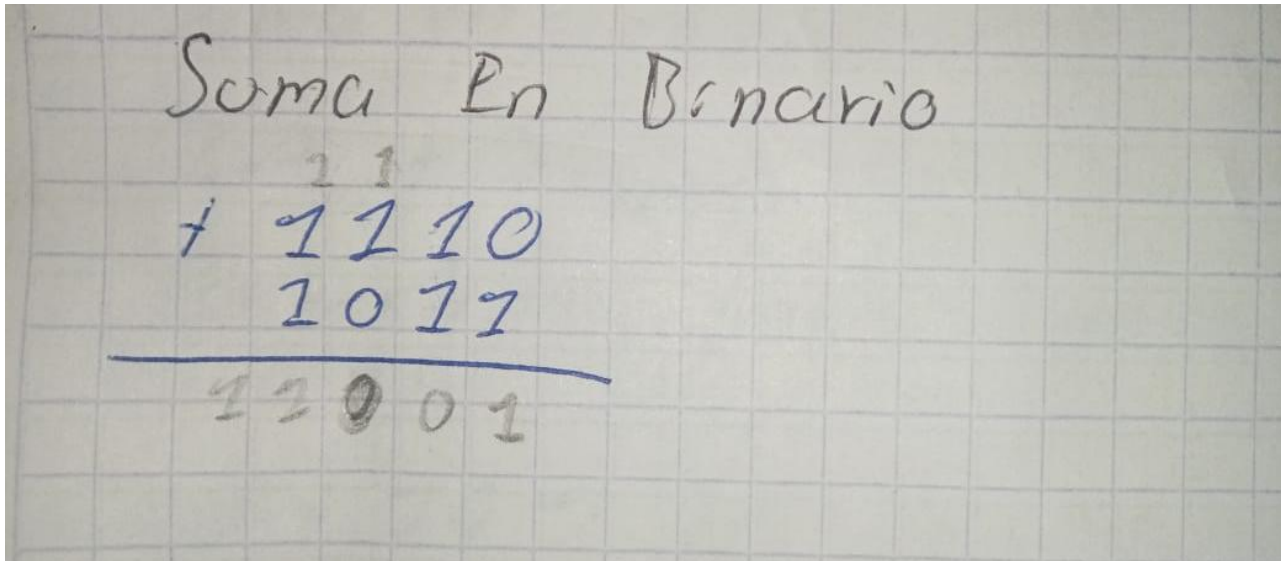 Suma En Binario
1 1
+ 1110
1011
11001